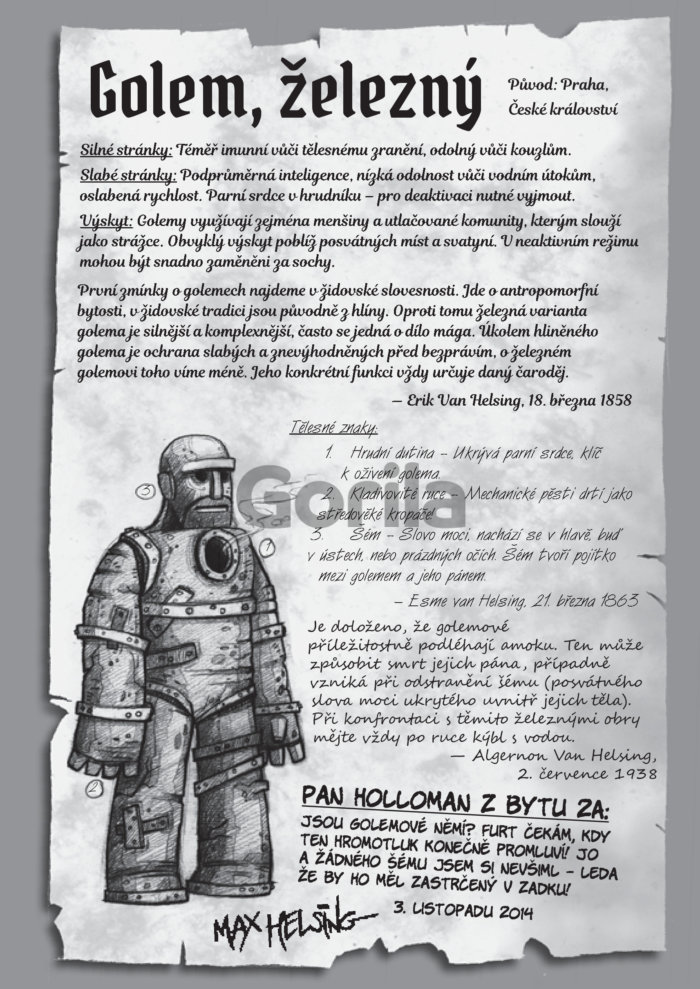 Golem, železný
Původ: Praha,
České království
Silné stránky: Téměř imunní vůči tělesnému zranění, odolný vůči kouzlům.
Slabé stránky: Podprůměrná inteligence, nízká odolnost vůči vodním útokům,
oslabená rychlost. Parní srdce v hrudníku – pro deaktivaci nutné vyjmout.
Výskyt: Golemy využívají zejména menšiny a utlačované komunity, kterým slouží
jako strážce. Obvyklý výskyt poblíž posvátných míst a svatyní. V neaktivním režimu
mohou být snadno zaměněni za sochy.
První zmínky o golemech najdeme v židovské slovesnosti. Jde o antropomorfní
bytosti, v židovské tradici jsou původně z hlíny. Oproti tomu železná varianta
golema je silnější a komplexnější, často se jedná o dílo mága. Úkolem hliněného
golema je ochrana slabých a znevýhodněných před bezprávím, o železném
golemovi toho víme méně. Jeho konkrétní funkci vždy určuje daný čaroděj.
– Erik Van Helsing, 18. března 1858
Tělesné znaky:
1. Hrudní dutina – Ukrývá parní srdce, klíč
k oživení golema.
2. Kladivovité ruce – Mechanické pěsti drtí jako
středověké kropáče!
3. Šém – Slovo moci, nachází se v hlavě, buď
v ústech, nebo prázdných očích. Šém tvoří pojítko
mezi golemem a jeho pánem.
– Esme van Helsing, 21. března 1863
Je doloženo, že golemové
příležitostně podléhají amoku. Ten může
způsobit smrt jejich pána, případně
vzniká při odstranění šému (posvátného
slova moci ukrytého uvnitř jejich těla).
Při konfrontaci s těmito železnými obry
mějte vždy po ruce kýbl s vodou.
— Algernon Van Helsing,
2. července 1938
PAN HOLLOMAN Z BYTU 2A:
JSOU GOLEMOVÉ NĚMÍ? FURT ČEKÁM, KDY
TEN HROMOTLUK KONEČNĚ PROMLUVÍ! JO
A ŽÁDNÉHO ŠÉMU JSEM SI NEVŠIML – LEDA
ŽE BY HO MĚL ZASTRČENÝ V ZADKU!
3. LISTOPADU 2014
MAX HELSING
3
1
2
Gorila